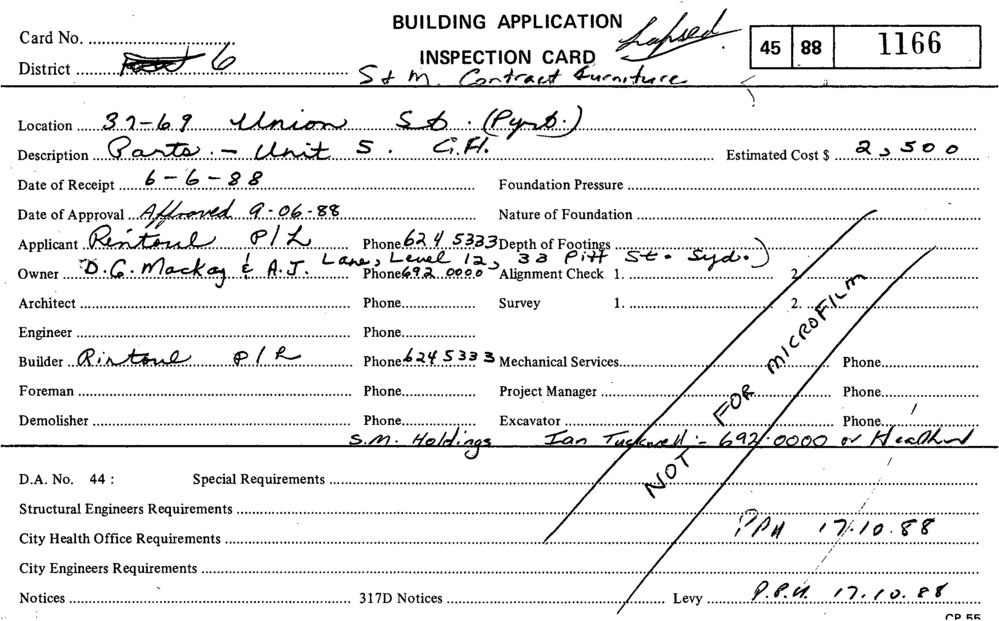 BUILDING APPLICATION
Lapsed
Card No.
INSPECTION CARD
45 88 1166
District 6
S & M. Contract Furniture
Location 37-69 Union St. (Pyrt.)
Description Parts. - Unit 5. G.Fl.
Estimated Cost $ 2,500
Date of Receipt 6-6-88
Foundation Pressure
Date of Approval Approved 9-06-88
Nature of Foundation
Applicant Rintoul P/L Phone 624 5333
Depth of Footings
Owner D.G. Mackay & A.J. Lane, Level 12, 33 Pitt St. Syd.) Phone 692 0000
Alignment Check 1. 2.
Architect Phone
Survey 1. 2.
Engineer Phone
Builder Rintoul P/L Phone 624 5333
Mechanical Services Phone
Foreman Phone
Project Manager Phone
Demolisher Phone
Excavator Phone
S.M. Holdings Ian Tucknell :- 692.0000 or
NOT FOR MICROFILM
D.A. No. 44 : Special Requirements
Structural Engineers Requirements
City Health Office Requirements PPH 17.10.88
City Engineers Requirements
Notices 317D Notices Levy P.P.H. 17.10.88
CP 55